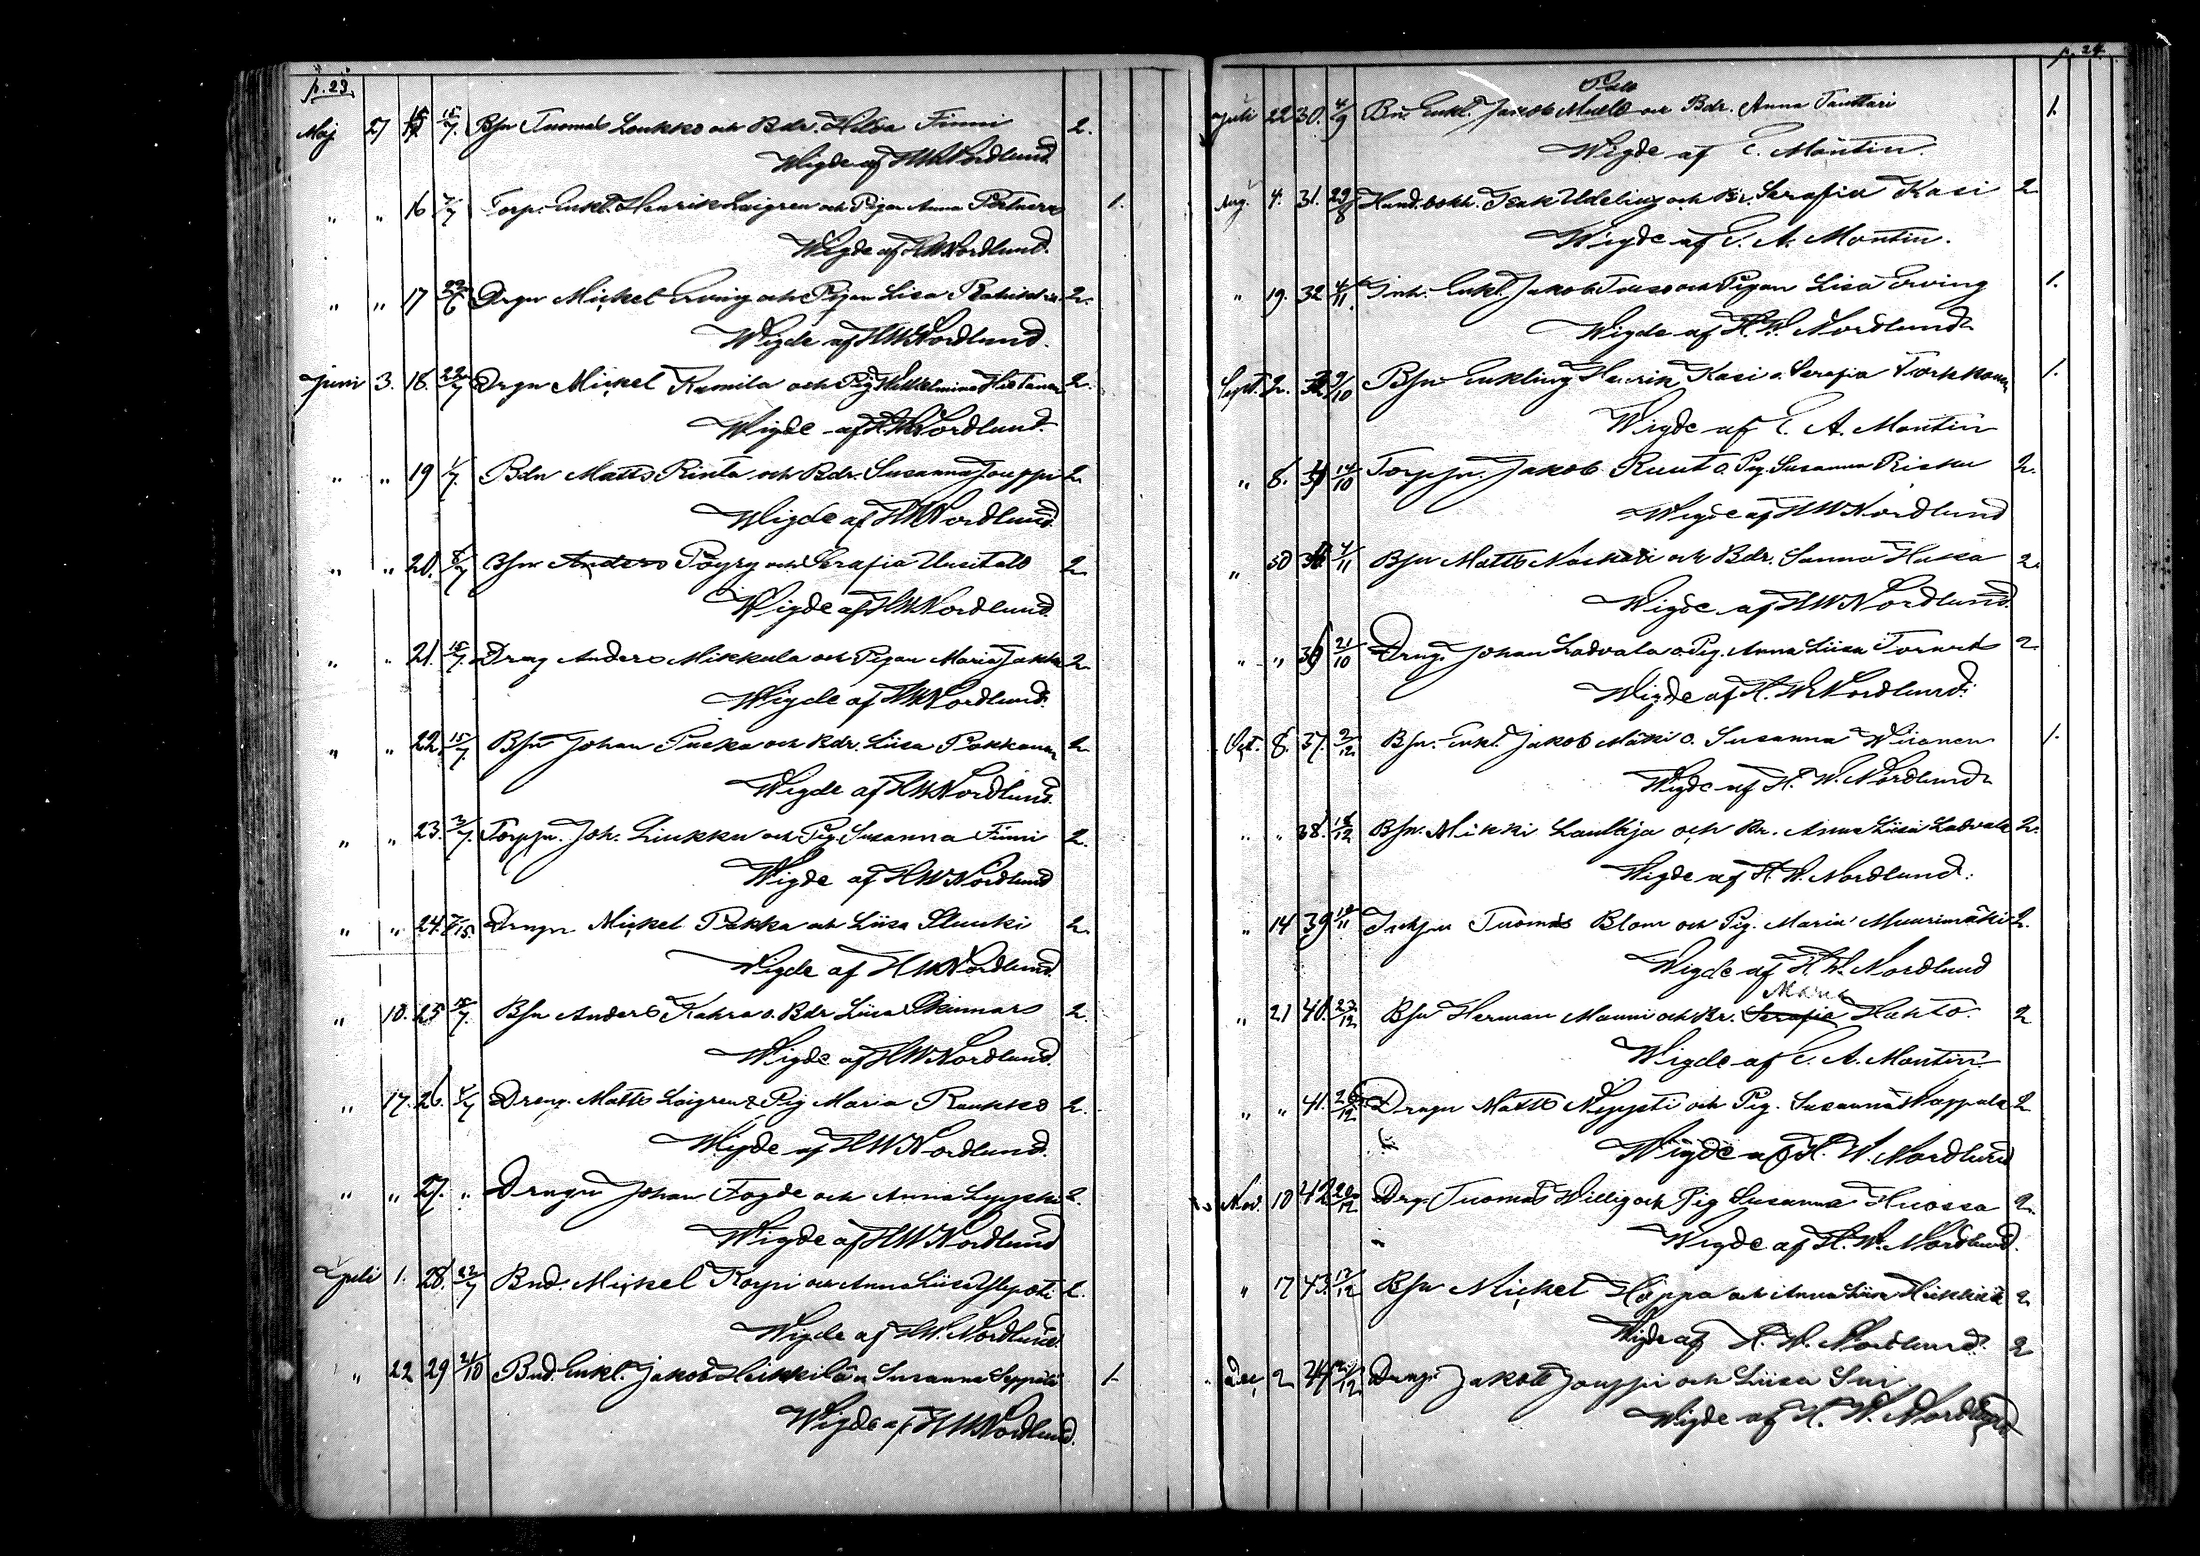 p. 23.
Maj 27 15 15/7. Bsn Tuomas Loukko och Bdr. Helsa Finni 2.
Wigde af HWNordlund.
" " 16 7/7 Torp. Enkl. Henrik Loigren och Pigan Anna 1.
Wigde af HWNordlund.
" " 17 Drgn Mickel Erving och Pigan Lisa 2.
Wigde af HWNordlund.
Juni 3. 18. 22/7 Drgn Mickel Kamila och Pig 2.
Wigde af H.WNordlund.
" " 19 1/7. Bdn Matts Rinta och Bdr. Susanna Jouppi 2.
Wigde af HWNordlund.
" " 20. 8/7 Bsn Anders Pöyry och Serafia Uusitalo 2.
Wigde af HWNordlund.
" " 21. 15/7. Dreng Anders Mikkula och Pigan Maria 2.
Wigde af HWNordlund.
" " 22. 15/7. Bsn Johan och Bdr. Liisa Pokkanen 2.
Wigde af HWNordlund.
" " 23. 3/7. Torppn. Joh. Liukku och Pig. Susanna Finni 2.
Wigde af HWNordlund
" " 24. Drngn Mickel Pakka och Liisa 2.
Wigde af HWNordlund.
" 10. 25 15/7. Bsn Anders Kahra o. Bdr Liisa 2.
Wigde af HWNordlund.
" 17. 26. 8/7 Dreng. Matts Loigren & Pig Maria Raukko 2.
Wigde af HWNordlund.
" " 27. " Drngn Johan Fogde och Anna 2.
Wigde af HWNordlund
Juli 1. 28. 22/7 Bnd. Mickel Korpi och Anna Liisa 2.
Wigde af HW. Nordlund.
" 22 29 21/10 Bnd. Enkl. Jakob Heikkilä o. Susanna Seppälä 1.
Wigde af HWNordlund.
p. 24.
Juli 22 30. 4/9 Bn. Enkl. Jakob och Bdr. Anna Tanttari 1.
Wigde af E. Montin.
Aug. 4. 31. 29/8 Hand. bokh. Isak Udelius och Br. Serafia Kasi 2
Wigde af E. A. Montin.
" 19. 32 4/11. Inh. Enkl. Jakob och Pigan Lisa Erving 1.
Wigde af H. W. Nordlund
Sept. 2. 9/10 Bsn Enkling Henrik Kasi o. Serafia 1.
Wigde af E. A. Montin
" 8. 14/10 Torppn. Jakob Ruut o. Pig. Susanna Risku 2.
Wigde af HWNordlund
" 30 4/11 Bsn Matts och Bdr. Sanna 2.
Wigde af HWNordlund.
" " 36 21/10 Drng. Johan Ladvala o. Pig. Anna Liisa 2
Wigde af H. W. Nordlund.
Oct. 8. 37. 2/12 Bsn. Enkl. Jakob Mäki o. Susanna Wiianen 1.
Wigde af H. W. Nordlund
" " 38. 18/12 Bsn. Mikki Lauttaja och Br. Anna Liisa Ladvala 2.
Wigde af H. W. Nordlund.
" 14 39 18/11 Inhsn Tuomas Blom och Pig. Maria Muurimäki 2.
Wigde af H. W. Nordlund
Maria
" 21 40. 27/12 Bsn Herman Mauni och Br. Serafia Hahto. 2
Wigde af E. A. Montin.
" " 41. 26/12 Drngn Matts Neppti och Pig. Susanna 2
Wigde af H. W. Nordlund
Nov. 10 42 26/12 Drg. Tuomas Willig och Pig Susanna Huossa 2.
Wigde af H. W. Nordlund.
" 17 43. 13/12 Bsn Mickel Hoppa och Anna Liisa Heikkilä 2
Wigde af H. W. Nordlund. 2
Dec. 2 44 Drng. Jakob Jouppi och Liisa
Wigde af H. W. Nordlund